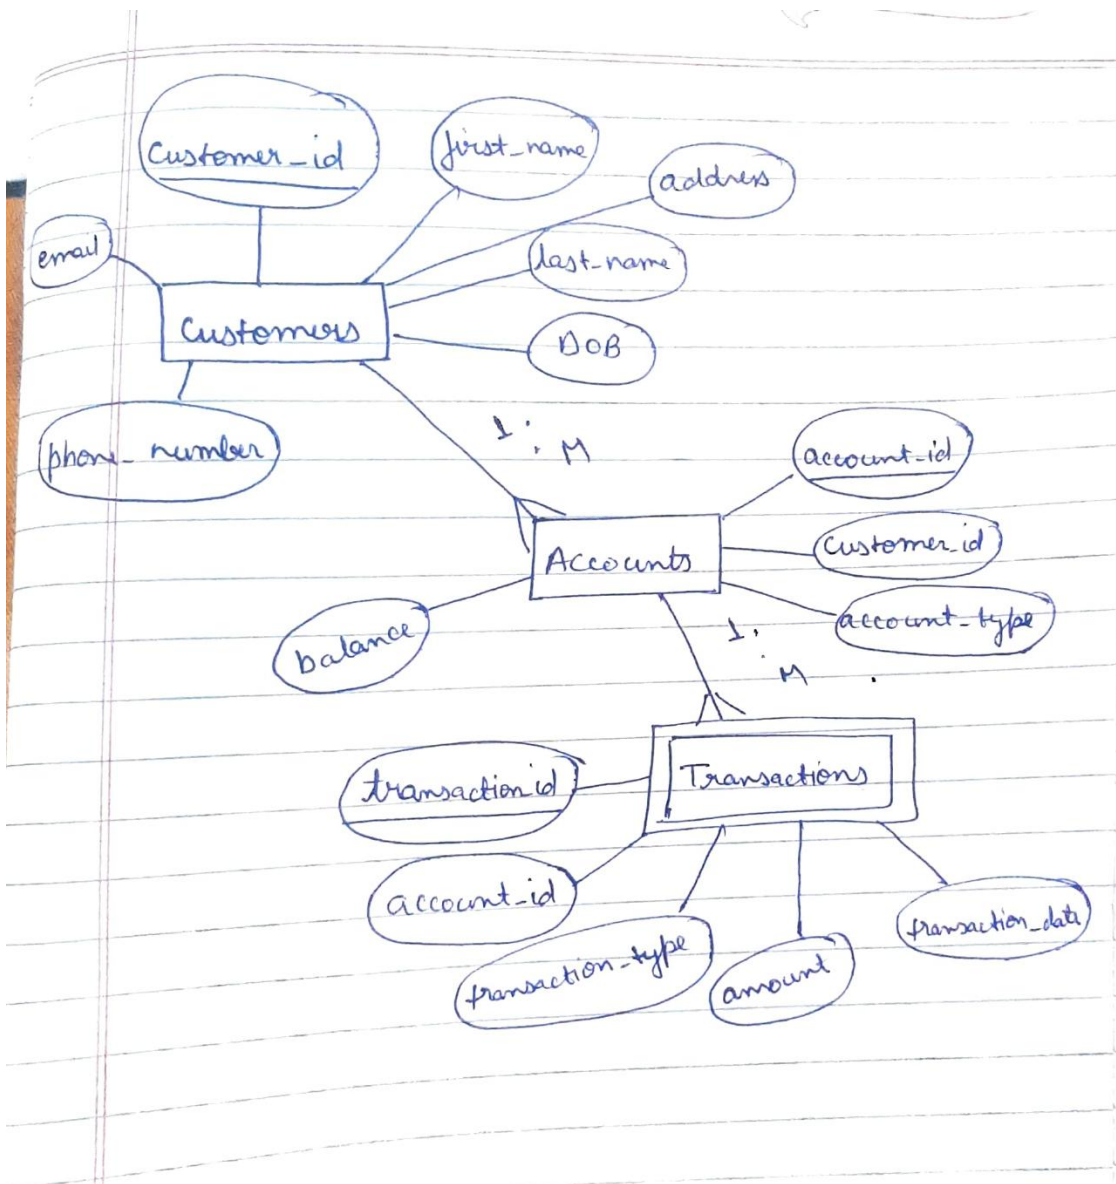 customer_id
first_name
address
email
last_name
Customers
DOB
phone_number
1:M
account_id
customer_id
Accounts
account_type
balance
1:M
transaction id
Transactions
account_id
transaction_type
amount
transaction_date